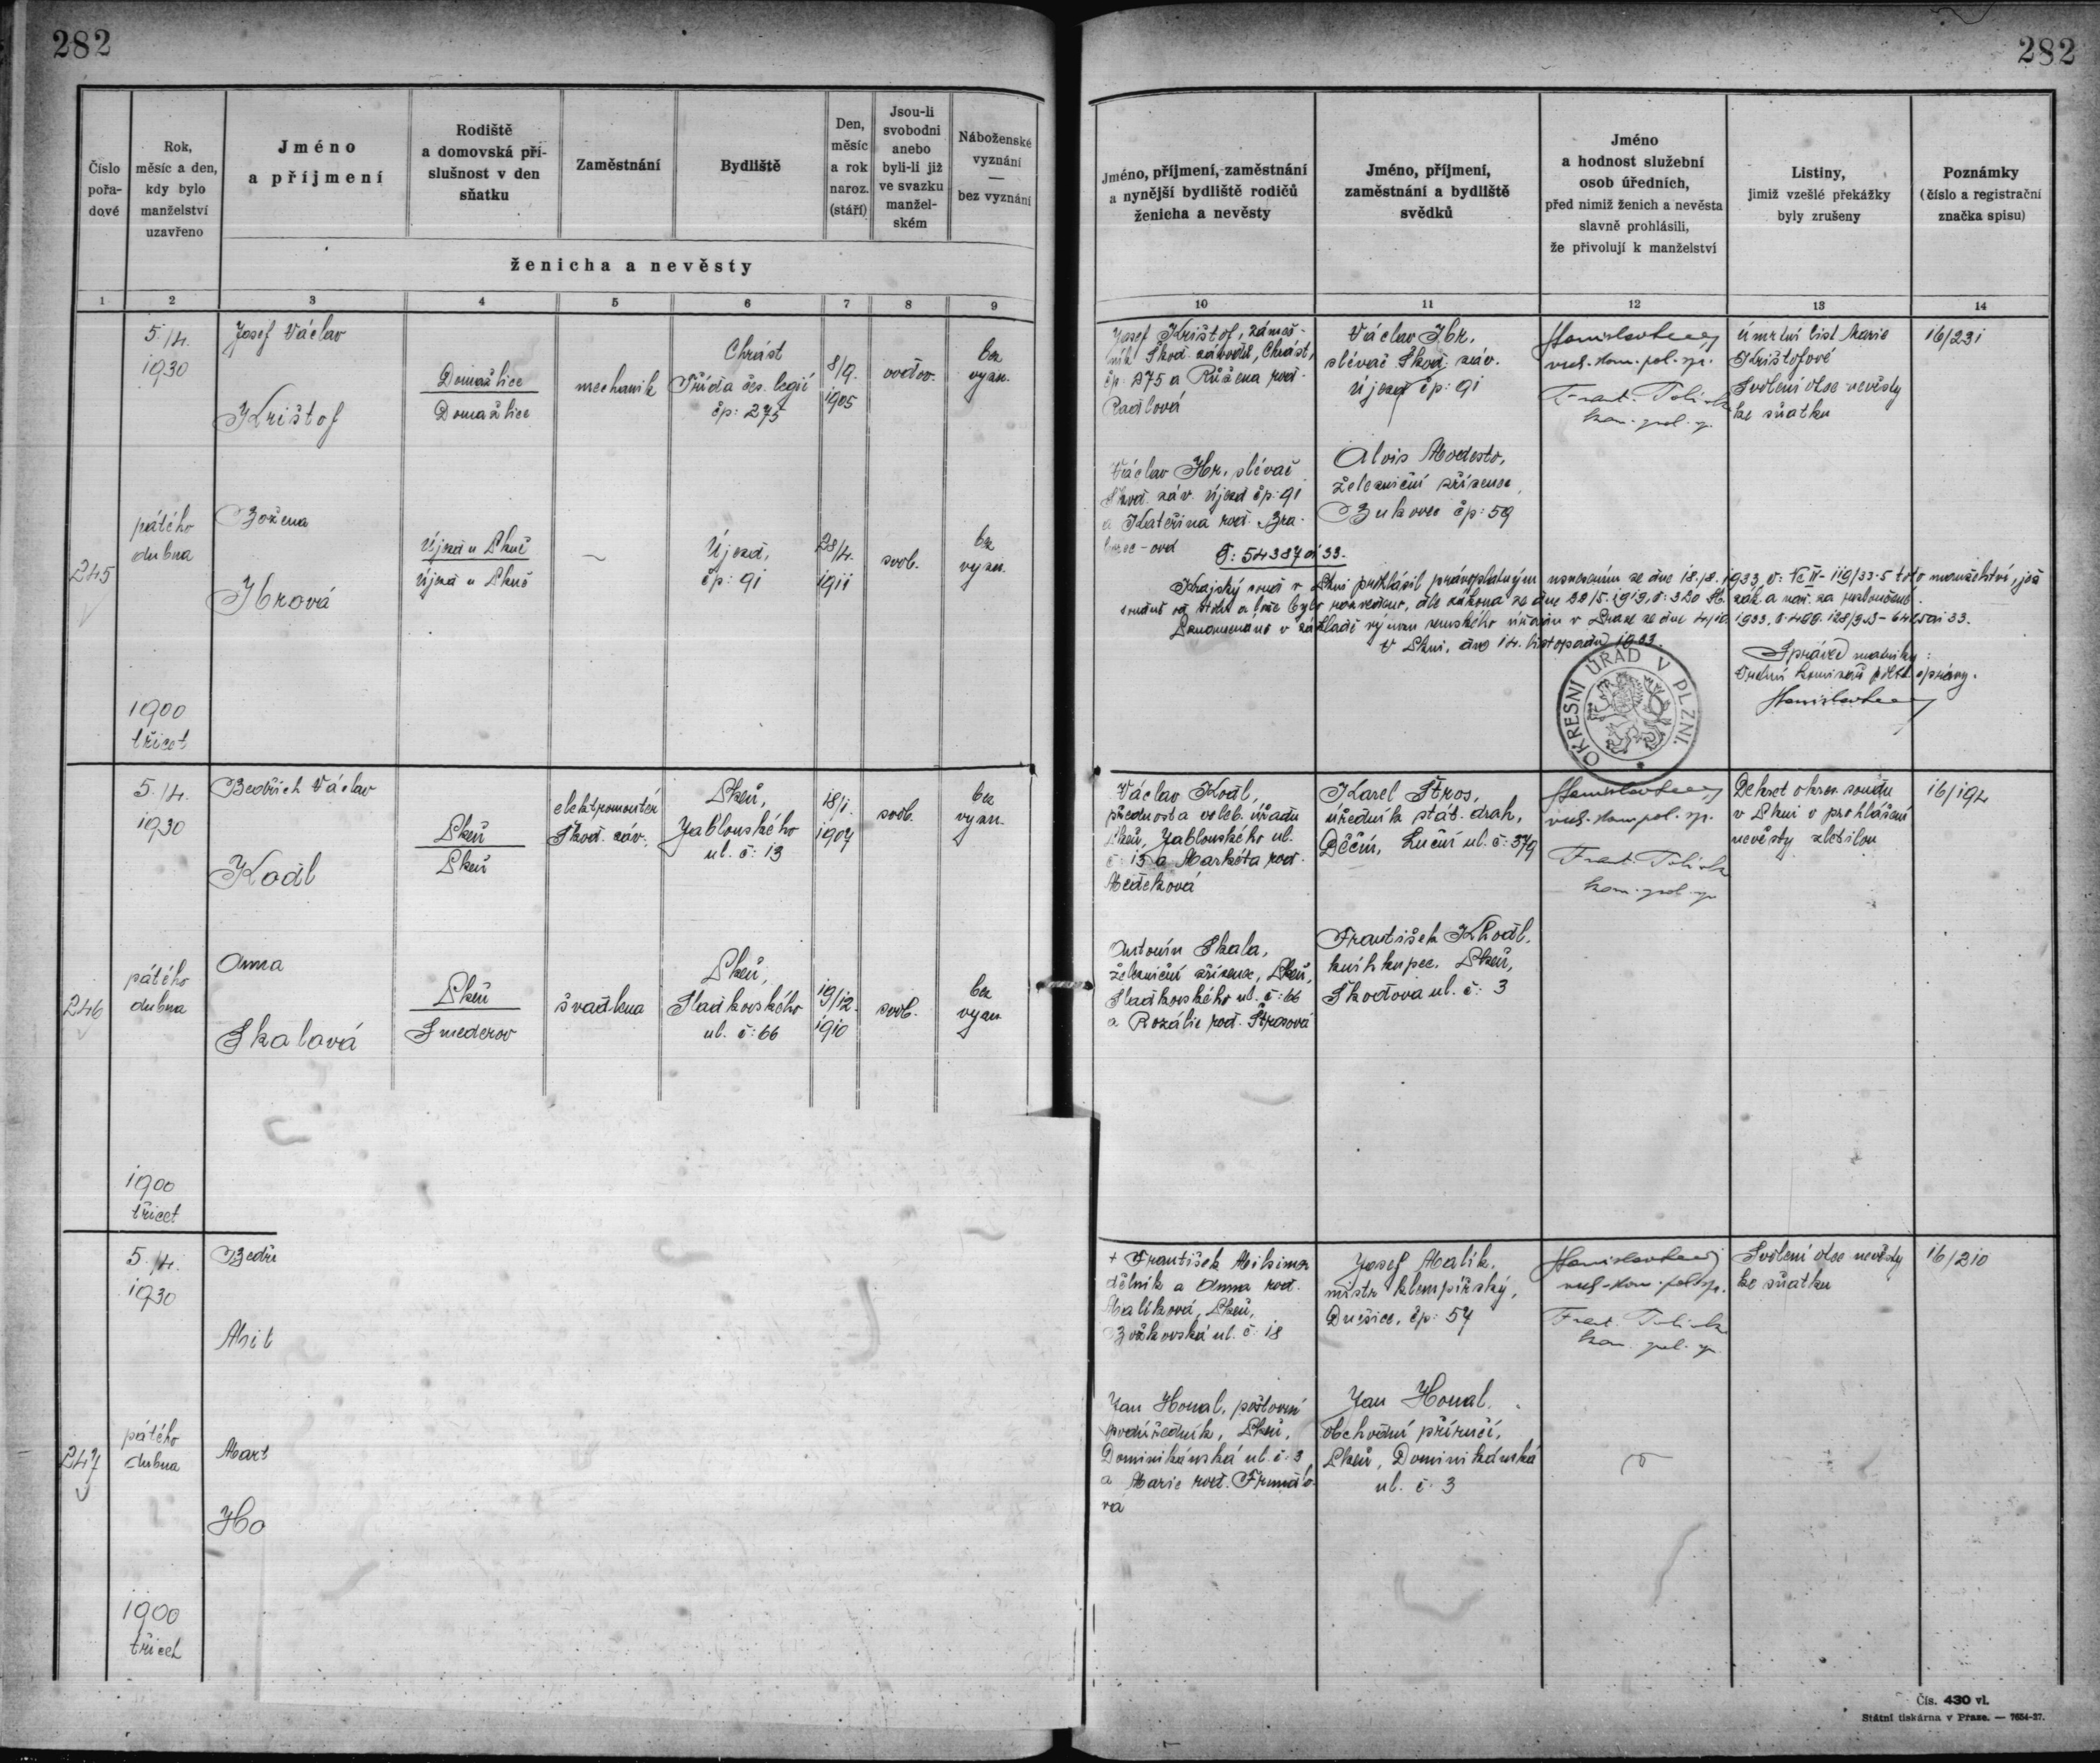 282
282
Číslo
pořa-
dové
Rok,
měsíc a den,
kdy bylo
manželství
uzavřeno
Jméno
a příjmení
Rodiště
a domovská pří-
slušnost v den
sňatku
Zaměstnání
Bydliště
Den,
měsíc
a rok
naroz.
(stáří)
Jsou-li
svobodni
anebo
byli-li již
ve svazku
manžel-
ském
Náboženské
vyznání
—
bez vyznání
ženicha a nevěsty
Jméno, příjmení, zaměstnání
a nynější bydliště rodičů
ženicha a nevěsty
Jméno, příjmení,
zaměstnání a bydliště
svědků
Jméno
a hodnost služební
osob úředních,
před nimiž ženich a nevěsta
slavně prohlásili,
že přivolují k manželství
Listiny,
jimiž vzešlé překážky
byly zrušeny
Poznámky
(číslo a registrační
značka spisu)
1 2 3 4 5 6 7 8 9 10 11 12 13 14
245
5./4.
1930
pátého
dubna
1900
třicet
Josef Václav
Krištof
Domažlice
Domažlice
mechanik
Chrást
Třída čes. legií
čp: 275
8/9.
1905
vdov.
bez
vyzn.
Božena
Hrová
Újezd u Plzně
Újezd u Plzně
Újezd,
čp: 91
28/4.
1911
svob.
bez
vyzn.
Josef Krištof, zámeč-
ník Škod. závodů, Chrást,
čp: 275 a Růžena roz.
Radlová
Václav Hr, slévač
Škod. záv. Újezd čp: 91
a Kateřina roz.
Václav Hr,
slévač Škod. záv.
Újezd čp: 91
Alois Modesto,
železniční zřízenec,
Bukovec čp: 59
vrch. kom. pol. spr.
Frant.
kom. pol. spr.
Úmrtní list Marie
Krištofové
Svolení otce nevěsty
ke sňatku
16/231
Č: 54387 ai 33.
Krajský soud v Plzni prohlásil právoplatným usnesením ze dne 18./8. 1933, č: 119/33-5 toto manželství, jež
soudně od stolu a lože bylo rozvedeno, dle zákona ze dne 22/5. 1919, č: 320 Sb. zák. a nař. za rozloučené.
Poznamenáno v základě výnosu zemského úřadu v Praze ze dne 4/10. 1933,
V Plzni, dne 14. listopadu 1933.
Správce matriky:
Vrchní komisař polit. správy.
OKRESNÍ ÚŘAD V PLZNI.
246
5./4.
1930
pátého
dubna
1900
třicet
Bedřich Václav
Kodl
Plzeň
Plzeň
elektromontér
Škod. záv.
Plzeň,
Jablonského
ul. č: 13
18/1.
1907
svob.
bez
vyzn.
Anna
Skalová
Plzeň
Smederov
švadlena
Plzeň,
Sladkovského
ul. č: 66
19/12.
1910
svob.
bez
vyzn.
Václav Kodl,
přednosta celeb. úřadu
Plzeň, Jablonského ul.
č: 13 a Markéta roz.
Antonín Skala,
železniční zřízenec, Plzeň,
Sladkovského ul. č: 66
a Rozálie roz. Štrosová
Karel Štros,
úředník stát. drah,
Děčín, Luční ul. č: 379
František Khodl,
knihkupec. Plzeň,
Škodova ul. č: 3
vrch. kom. pol. spr.
Frant.
kom. pol. spr.
Dekret okres. soudu
v Plzni o prohlášení
nevěsty zletilou
16/194
247
5./4.
1930
pátého
dubna
1900
třicet
Bedři
Mil
Mart
Ho
+ František
dělník a Anna roz.
Malíková, Plzeň,
ul. č: 18
Jan Honal, poštovní
podúředník, Plzeň,
Dominikánská ul. č: 3
a Marie roz.
Josef Malík,
mistr klempířský,
čp: 57
Jan Honal,
obchodní příručí,
Plzeň, Dominikánská
ul. č: 3
vrch. kom. pol. spr.
Frant.
kom. pol. spr.
Svolení otce nevěsty
ke sňatku
16/210
Čís. 430 vl.
Státní tiskárna v Praze. — 7654-27.